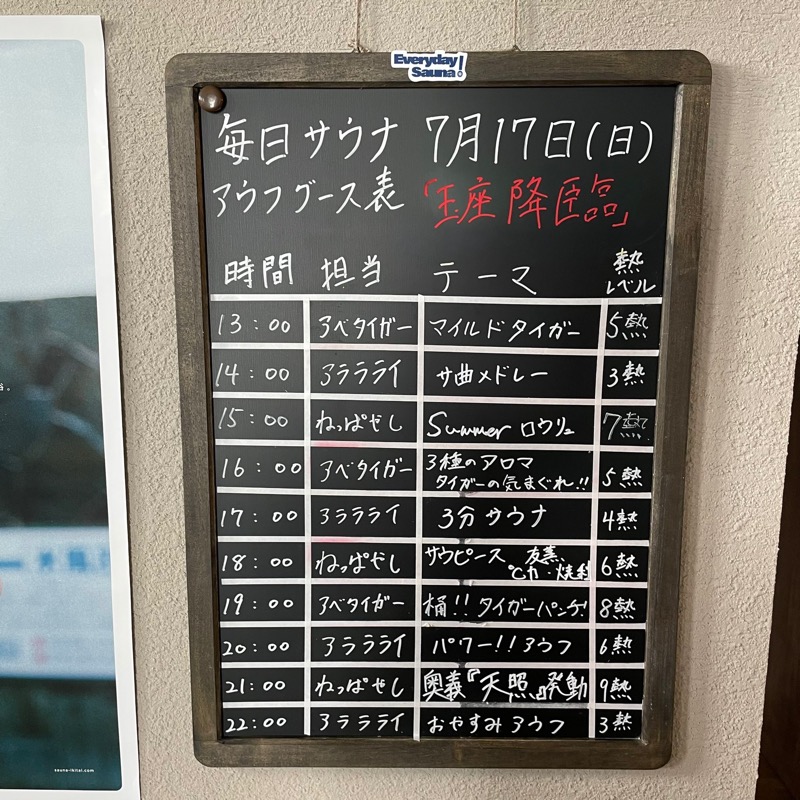 Everyday
Sauna!
毎日サウナ 7月17日(日)
アウフグース表 「玉座降臨」
時間 担当 テーマ 熱レベル
13:00 アベタイガー マイルドタイガー 5熱
14:00 アラララライ サ曲メドレー 3熱
15:00 ねっぱぜし Summer ロウリュ 7熱
16:00 アベタイガー 3種のアロマ
タイガーの気まぐれ!! 5熱
17:00 アラララライ 3分サウナ 4熱
18:00 ねっぱぜし サウピース 友蒸
℃カ・焼利 6熱
19:00 アベタイガー 桶!! タイガーパンチ! 8熱
20:00 アラララライ パワー!! アウフ 6熱
21:00 ねっぱぜし 奥義『天照』発動 9熱
22:00 アラララライ おやすみアウフ 3熱
sauna-ikitai.com